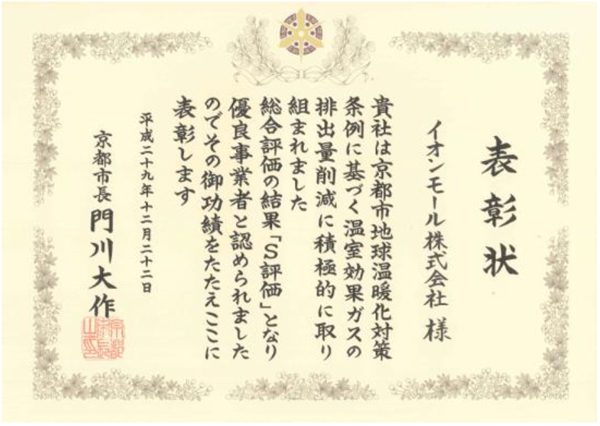 表彰状
イオンモール株式会社 様
貴社は京都市地球温暖化対策
条例に基づく温室効果ガスの
排出量削減に積極的に取り
組まれました
総合評価の結果「S評価」となり
優良事業者と認められました
のでその御功績をたたえここに
表彰します
平成二十九年十二月二十二日
京都市長 門川大作